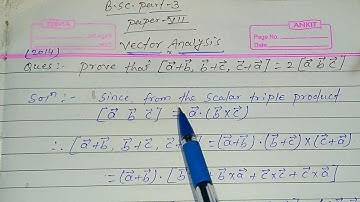 B.Sc. part-3
paper-VII
Vector Analysis
ANKIT
Page No.
Date
(2014)
Ques:- prove that [a⃗+b⃗, b⃗+c⃗, c⃗+a⃗] = 2[a⃗ b⃗ c⃗]
Solⁿ:- Since, from the scalar triple product
[a⃗ b⃗ c⃗] = a⃗·(b⃗×c⃗)
∴ [a⃗+b⃗, b⃗+c⃗, = (a⃗+b⃗)·(b⃗+c⃗)×(c⃗+a⃗)
= (a⃗+b⃗)·[b⃗ + b⃗×a⃗ + c⃗×c⃗ + c⃗×a⃗]